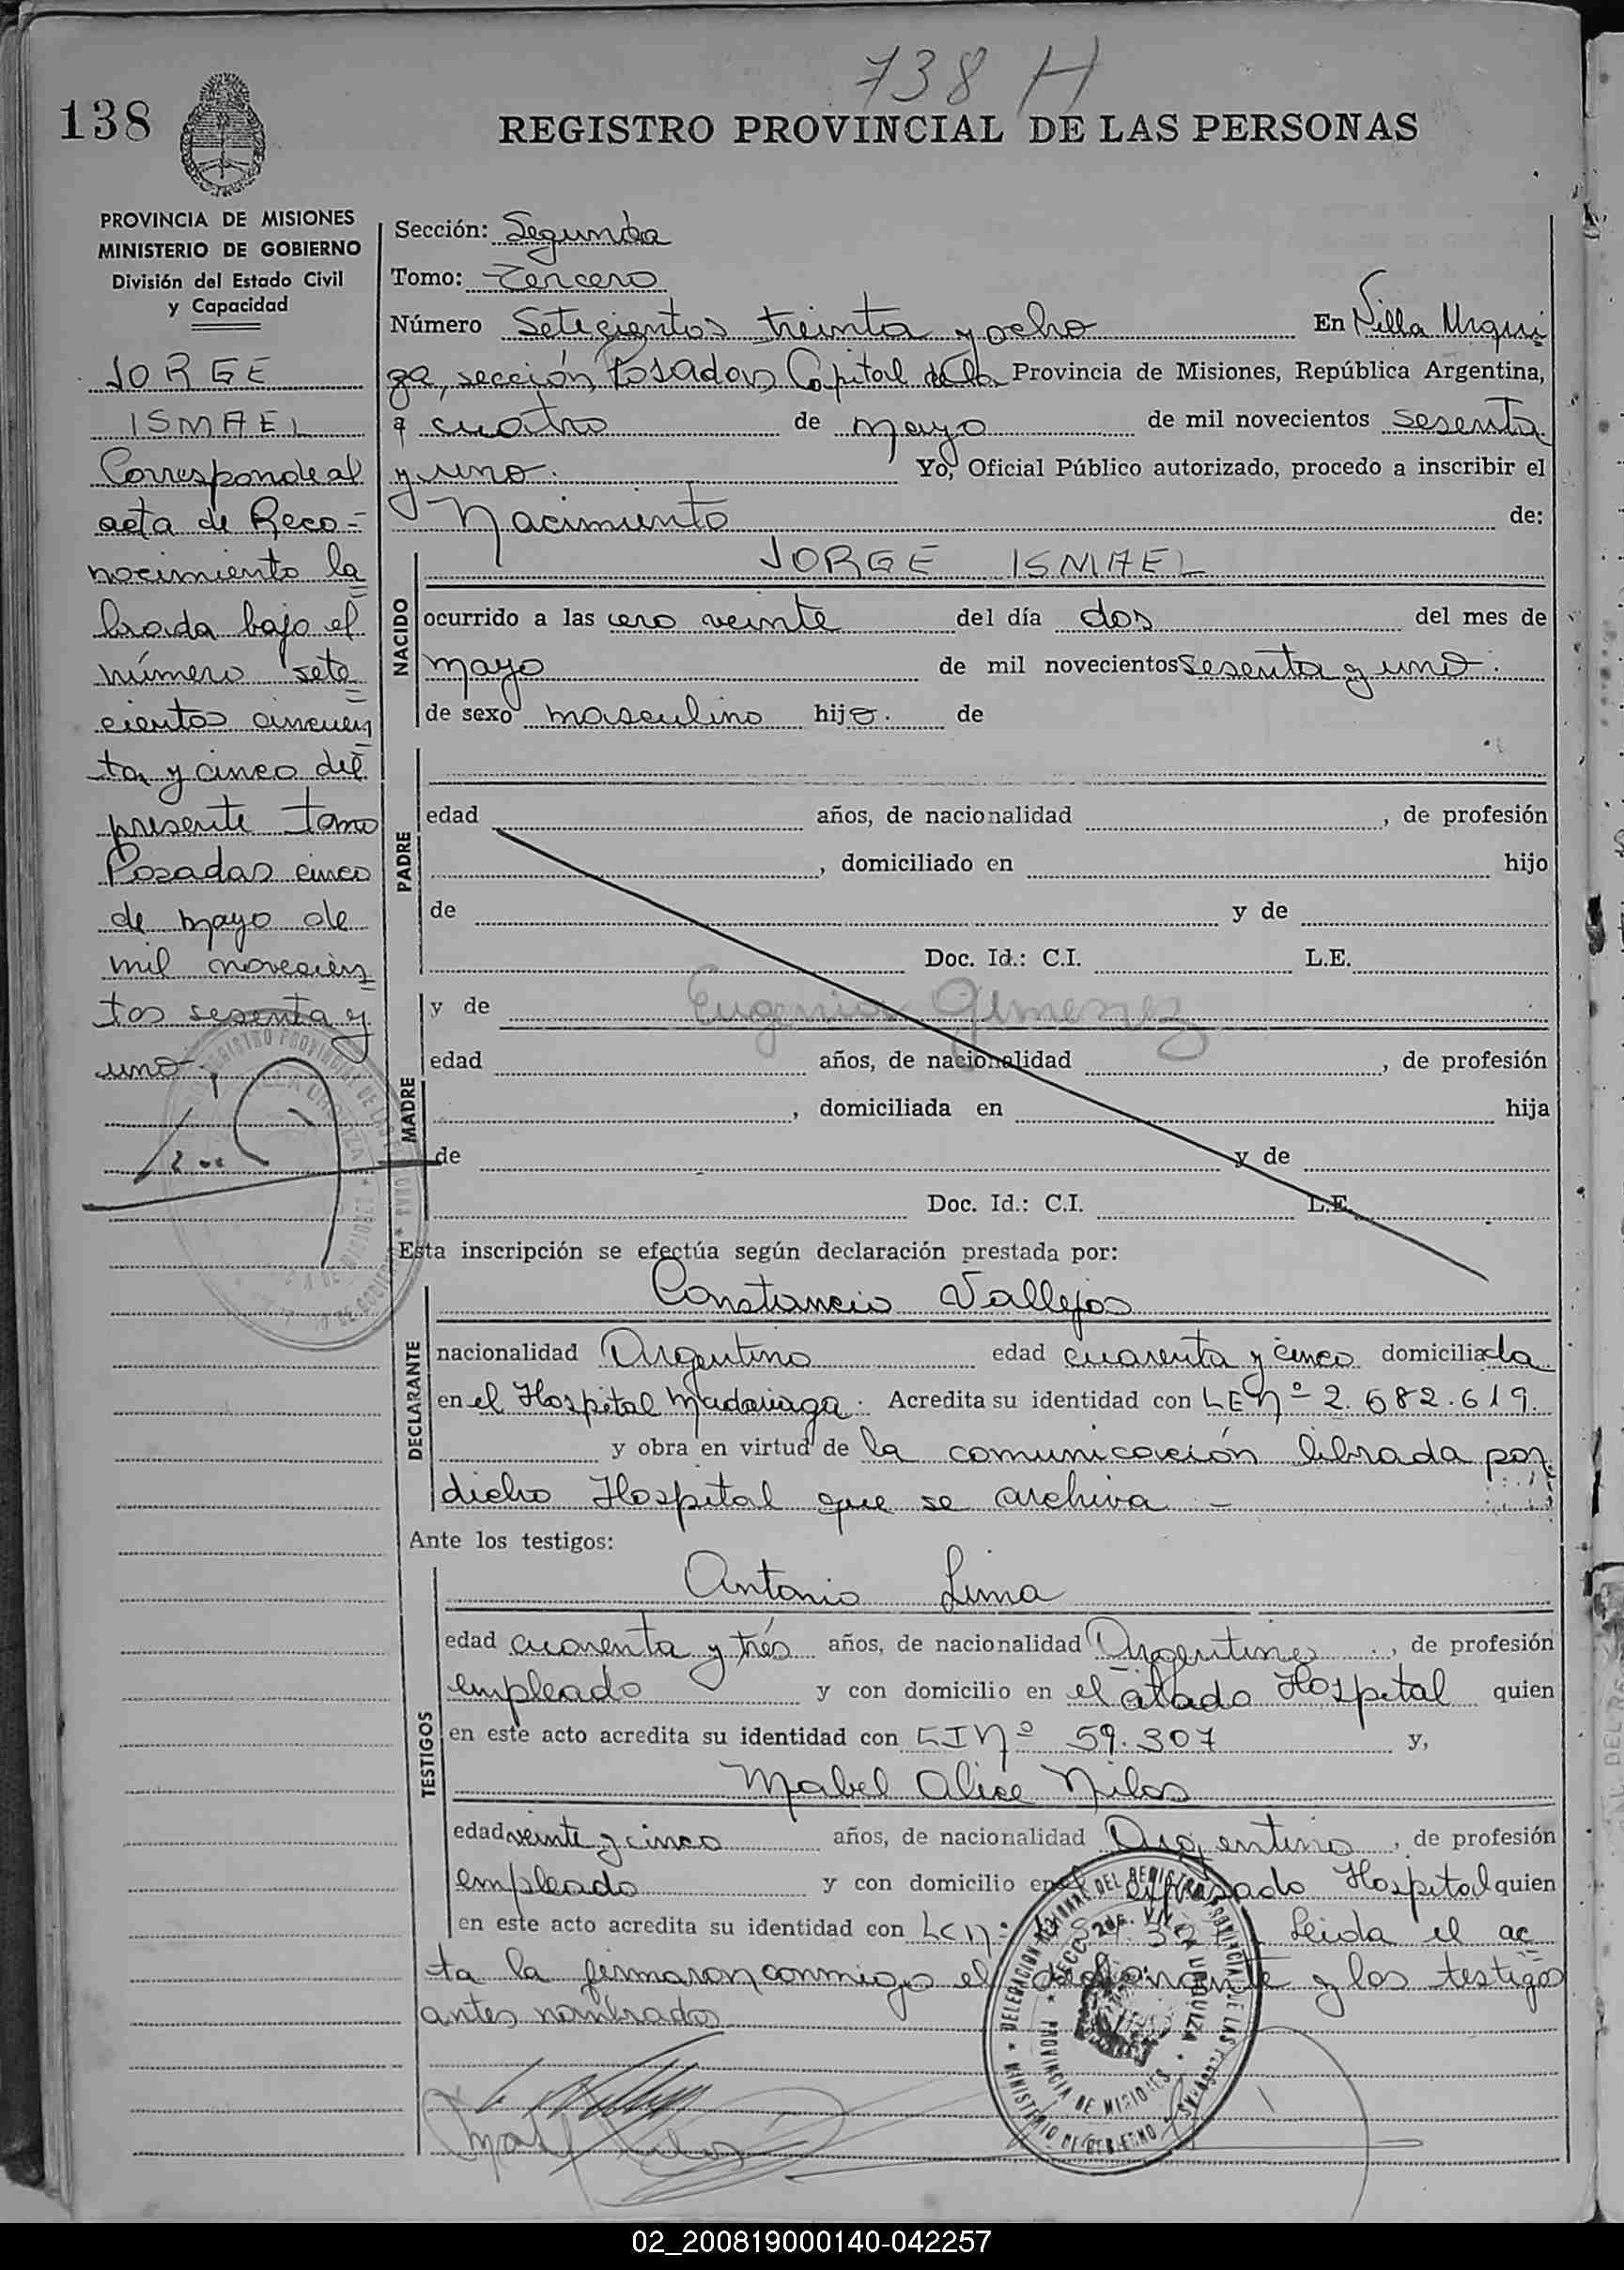 738 H
138
REGISTRO PROVINCIAL DE LAS PERSONAS
PROVINCIA DE MISIONES
MINISTERIO DE GOBIERNO
División del Estado Civil
y Capacidad
JORGE
ISMAEL
Corresponde al
acta de Reco=
nocimiento la=
brada bajo el
número sete=
cientos cincuen=
ta y cinco del
presente tomo
Posadas cinco
de mayo de
mil novecien=
tos sesenta y
uno.
Sección: Segunda
Tomo: Tercero
Número Setecientos treinta y ocho En Villa Urqui
za, sección Posadas Capital de la Provincia de Misiones, República Argentina,
a cuatro de mayo de mil novecientos sesenta
y uno. Yo, Oficial Público autorizado, procedo a inscribir el
Nacimiento de:
NACIDO
JORGE ISMAEL
ocurrido a las cero veinte del día dos del mes de
mayo de mil novecientos sesenta y uno.
de sexo masculino hijo. de
PADRE
edad años, de nacionalidad , de profesión
, domiciliado en hijo
de y de
Doc. Id.: C.I. L.E.
MADRE
y de Eugenia Gimenez
edad años, de nacionalidad , de profesión
, domiciliada en hija
de y de
Doc. Id.: C.I. L.E.
Esta inscripción se efectúa según declaración prestada por:
DECLARANTE
Constancio Vallejos
nacionalidad Argentino edad cuarenta y cinco domiciliado
en el Hospital Madariaga. Acredita su identidad con LE Nº 2.682.619.
y obra en virtud de la comunicación librada por
dicho Hospital que se archiva -
Ante los testigos:
TESTIGOS
Antonio Lima
edad cuarenta y trés años, de nacionalidad Argentino , de profesión
empleado y con domicilio en el citado Hospital quien
en este acto acredita su identidad con CI Nº 59.307 y,
Mabel Alice Nilos
edad veinte y cinco años, de nacionalidad Argentino , de profesión
empleado y con domicilio en el expresado Hospital quien
en este acto acredita su identidad con LC Nº Leida el ac
ta la firmaron conmigo el declarante y los testigos
antes nombrados
DELEGACION REGIONAL DEL REGISTRO PROVINCIAL DE LAS PERSONAS
MINISTERIO DE GOBIERNO
SECC. 2da. VILLA URQUIZA
PROVINCIA DE MISIONES
02_200819000140-042257